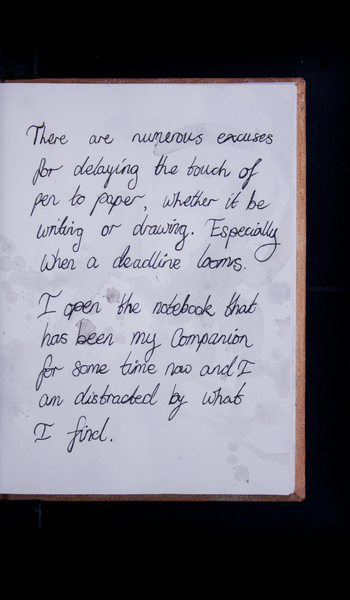 There are numerous excuses
for delaying the touch of
pen to paper, whether it be
writing or drawing. Especially
when a deadline looms.
I open the notebook that
has been my Companion
for some time now and I
am distracted by what
I find.